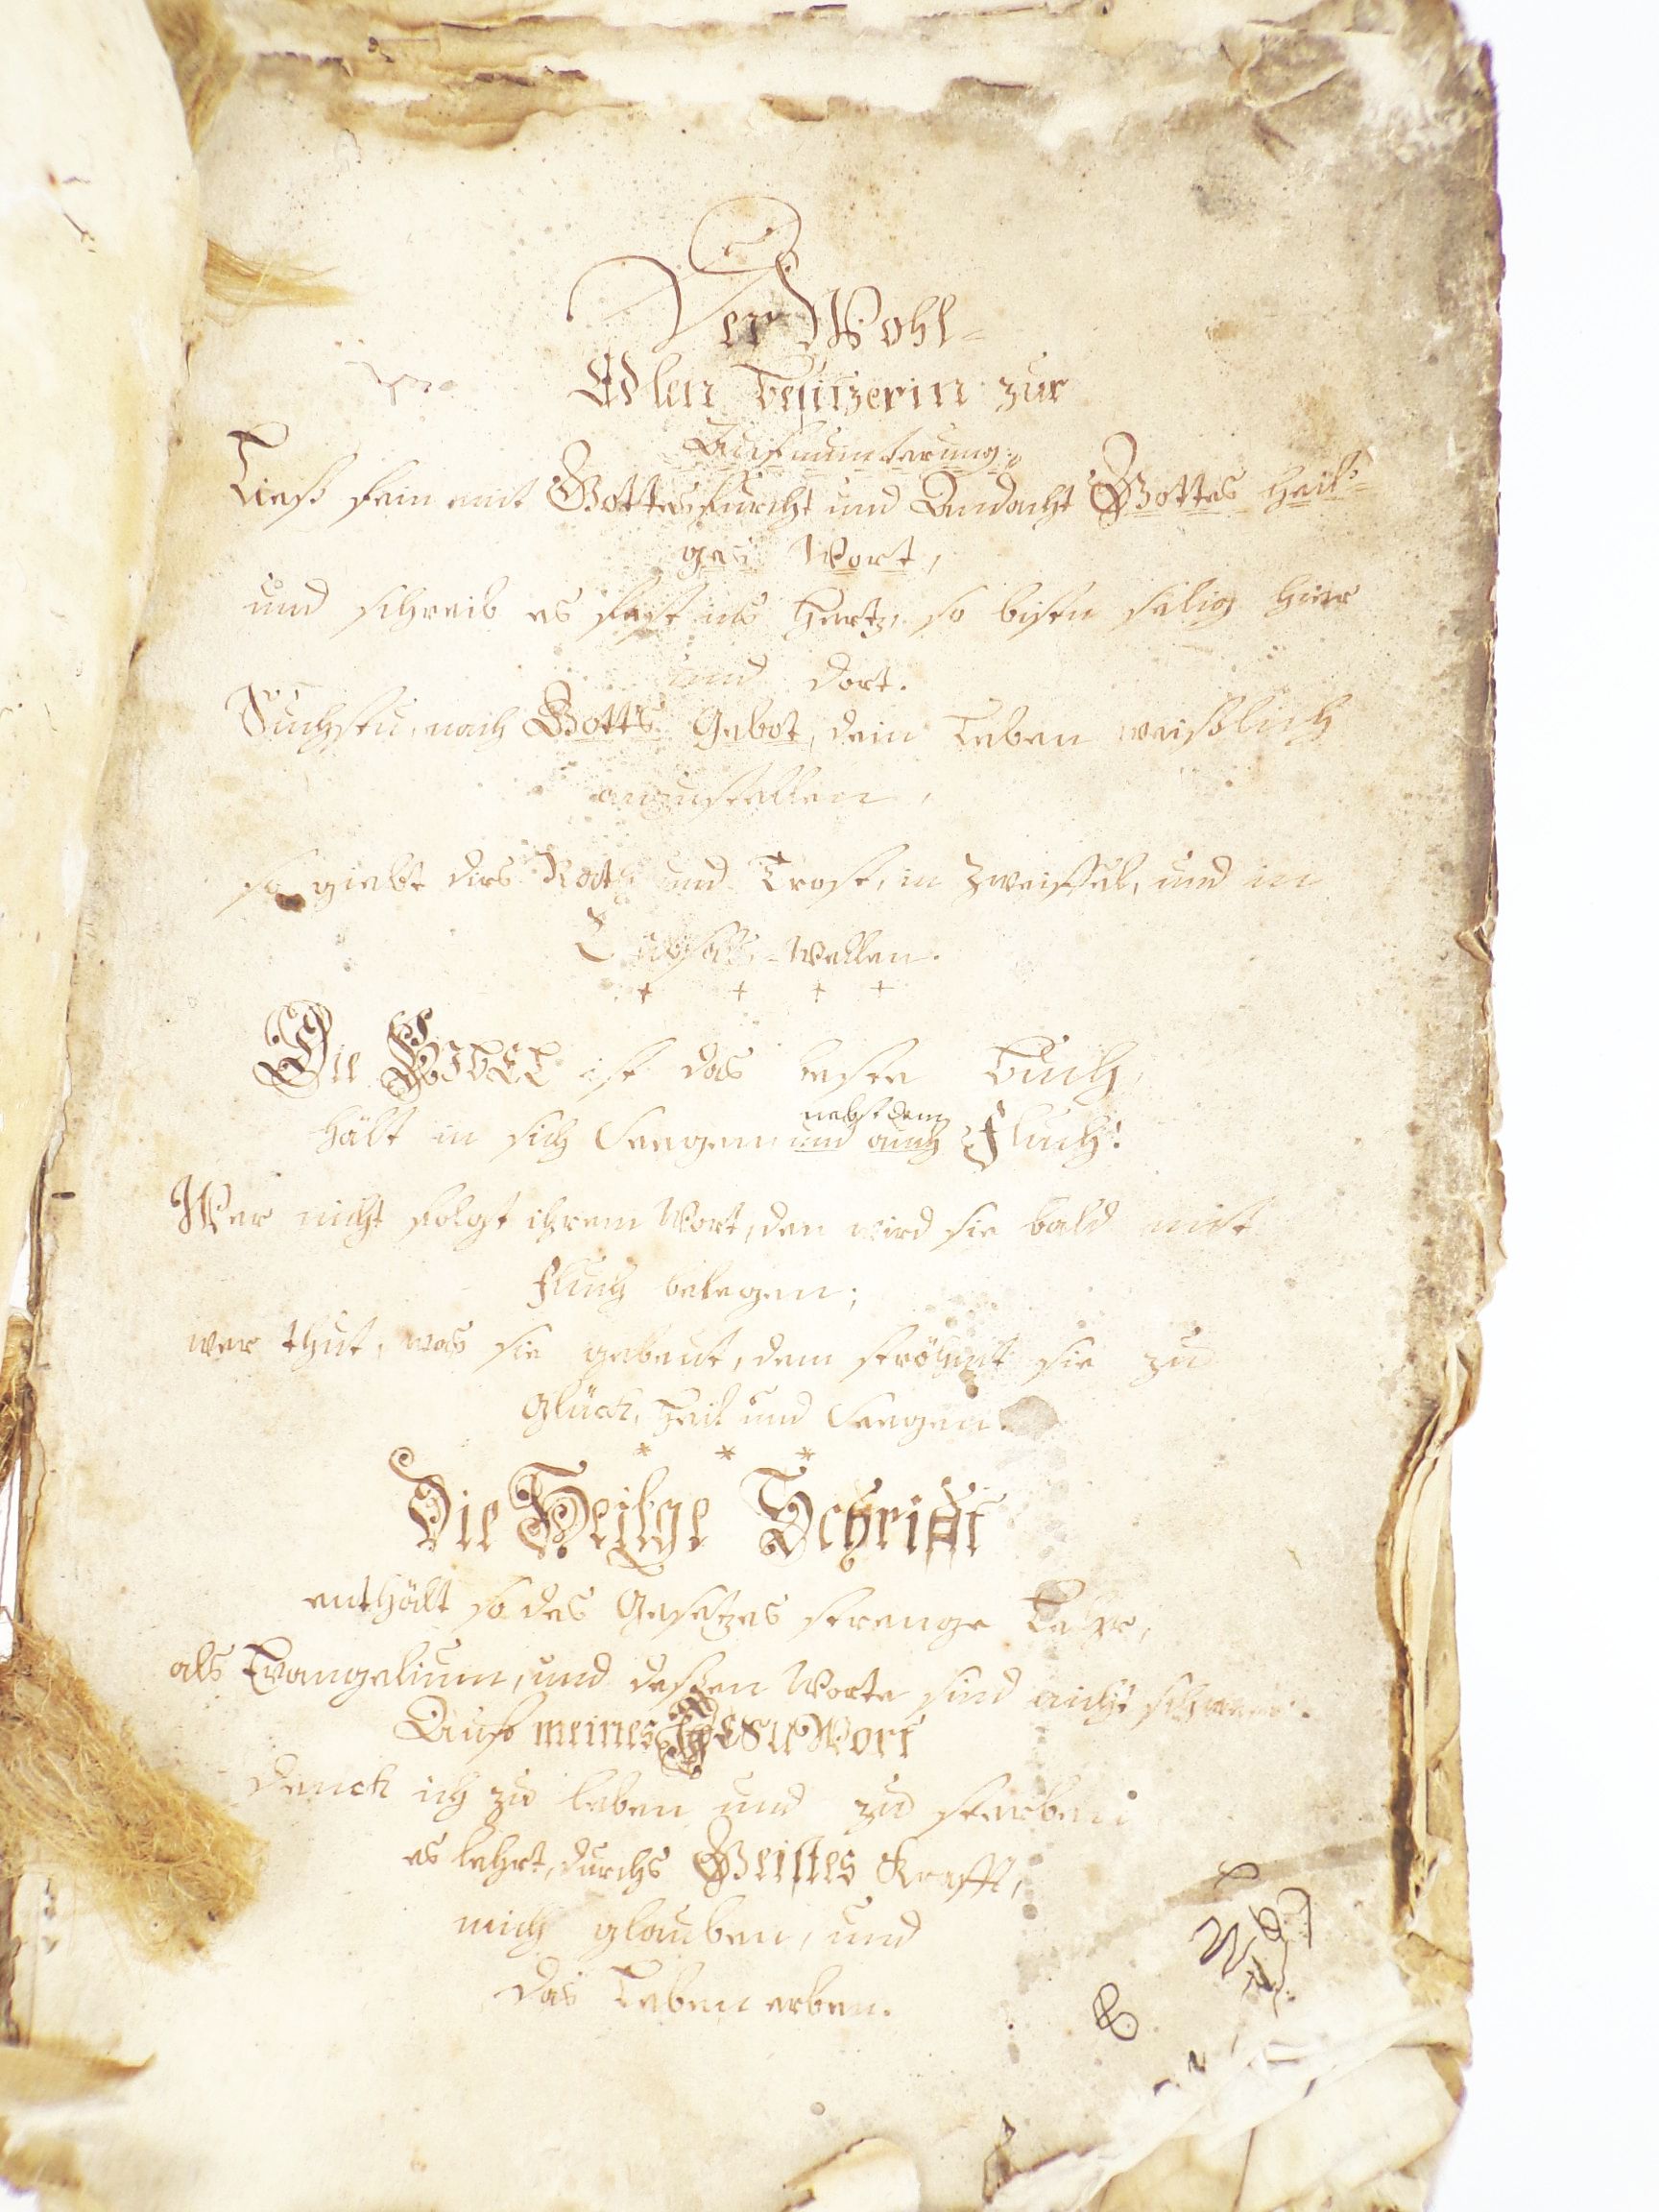 Der Wohl-
Edlen Besitzerin zur
Aufmunterung:
Ließ fein mit Gottesfurcht und Andacht Gottes heil-
ges Wort,
und schreib es fest ins Hertz, so bistu selig hier
und dort.
Suchstu, nach Gotts Gebot, dein Leben weißlich
anzustellen,
so giebt dirs Rath und Trost, in Zweiffel, und in
Wellen.
+ + + +
Die BIBEL ist das beste Buch,
nebst dem
hält in sich Seegen und auch Fluch!
Wer nicht folgt ihrem Wort, den wird sie bald mit
Fluch belegen;
wer thut, was sie gebeut, dem ströhmt sie zu
Glück, Heil und Seegen.
* * *
Die Heilge Schrifft
enthält so des Gesetzes strenge Lehr,
als Evangelium, und deßen Worte sind nicht schwer.
Auf meines JESU Wort
denck ich zu leben und zu sterben
es lehrt, durchs Geistes Krafft,
mich glauben, und
das Leben erben.